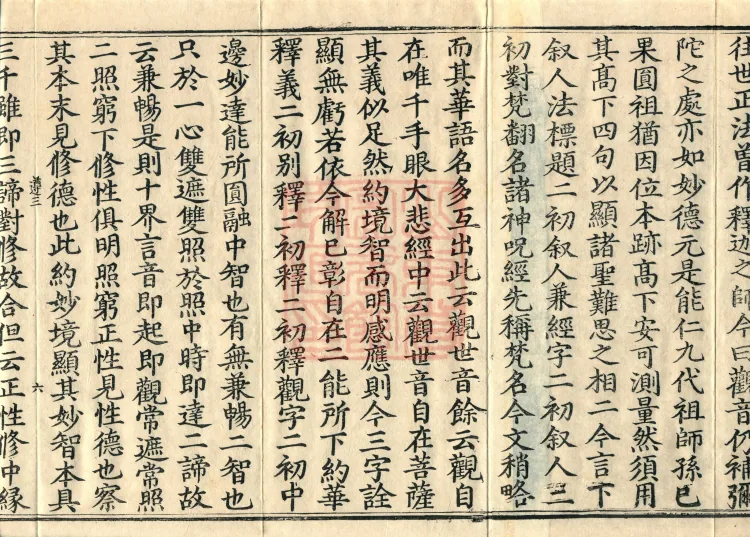 往世正法曾作釋迦之師今曰觀音仍補彌
陀之處亦如妙德元是能仁九代祖師孫已
果圓祖猶因位本跡髙下安可測量然須用
其髙下四句以顯諸聖難思之相二今言下
叙人法標題二初叙人兼經字二初叙人二
初對梵翻名諸神呪經先稱梵名今文稍略
而其華語名多互出此云觀世音餘云觀自
在唯千手眼大悲經中云觀世音自在菩薩
其義似足然約境智而明感應則今三字詮
顯無虧若依今解已彰自在二能所下約華
釋義二初别釋二初釋二初釋觀字二初中
邊妙達能所圓融中智也有無兼暢二智也
只於一心雙遮雙照於照中時即達二諦故
云兼暢是則十界言音即起即觀常遮常照
二照窮下修性俱明照窮正性見性德也察
其本末見修德也此約妙境顯其妙智本具
三千雖即三諦對修故合但云正性修中縁
六